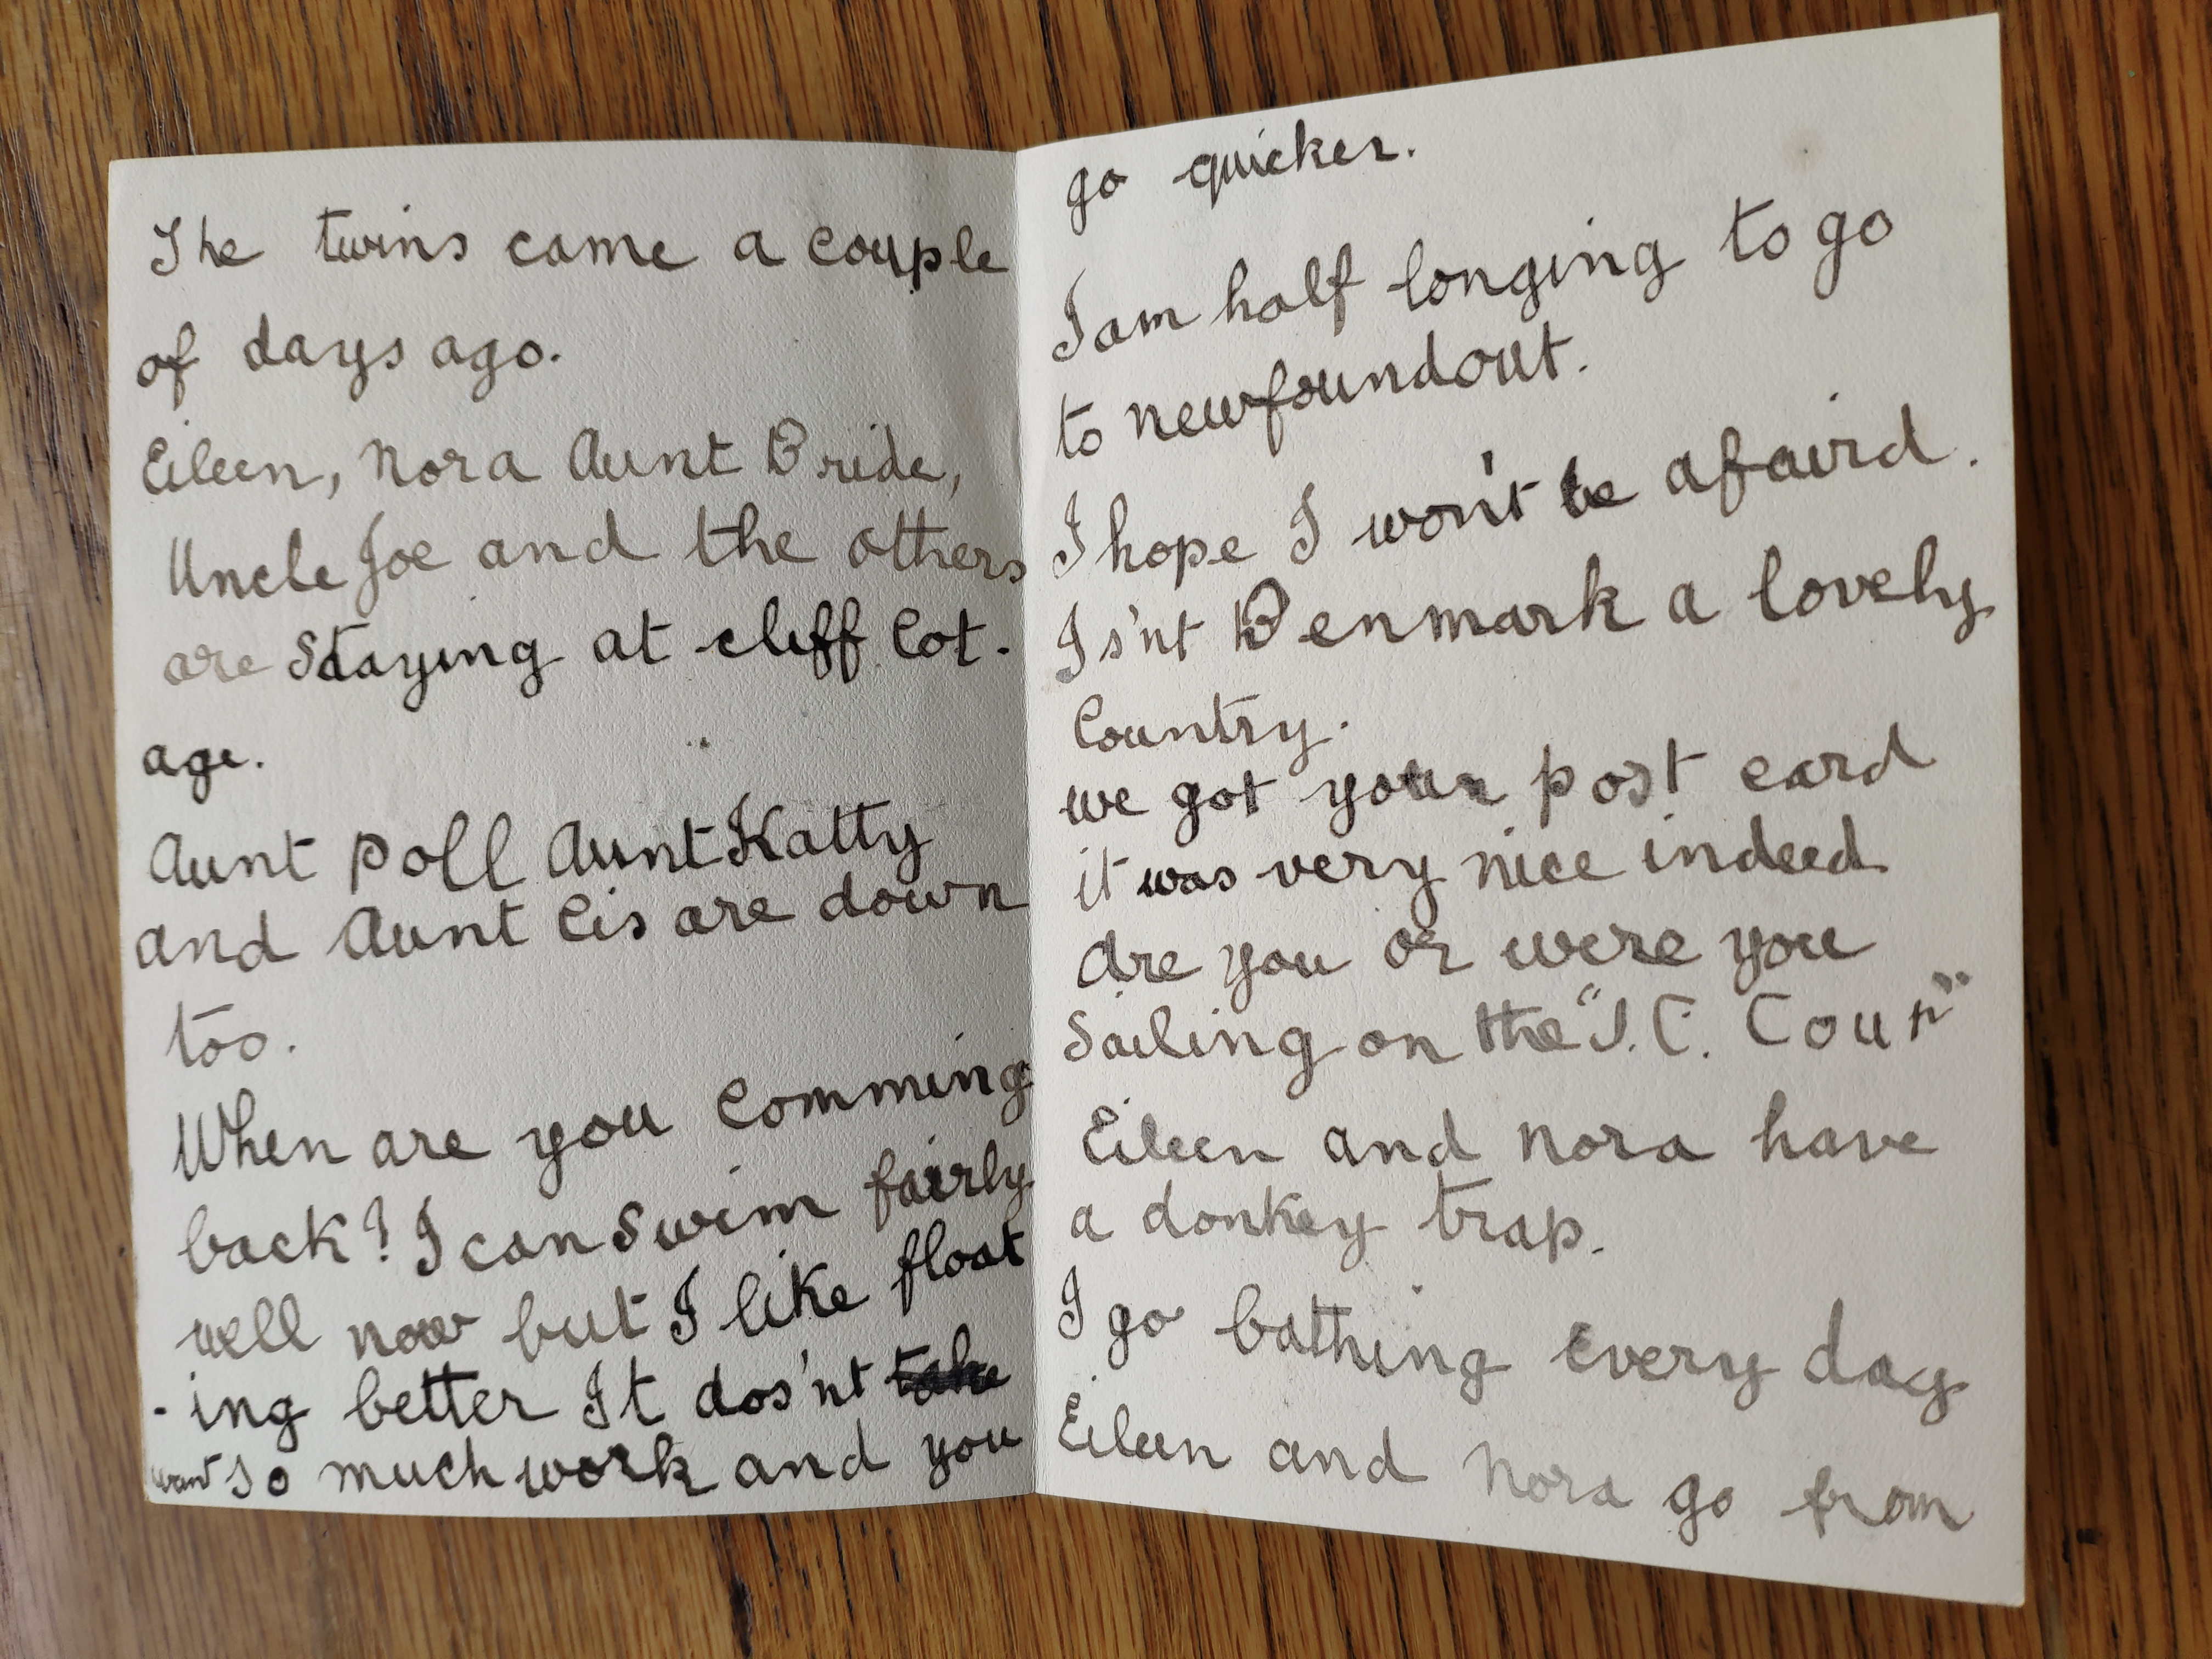 The twins came a couple
of days ago.
Eileen, Nora Aunt Bride,
Uncle Joe and the others
are staying at cliff Cot-
age.
Aunt Poll Aunt Katty
and Aunt Cis are down
too.
When are you comming
back? I can swim fairly
well now but I like float
-ing better It dos'nt take
want so much work and you
go quicker.
I am half longing to go
to newfoundout.
I hope I won't be afaird.
Is'nt Denmark a lovely
Country.
we got your post card
it was very nice indeed
Are you or were you
Sailing on the "J.C. Coun"
Eileen and Nora have
a donkey trap.
I go bathing every day
Eileen and Nora go from